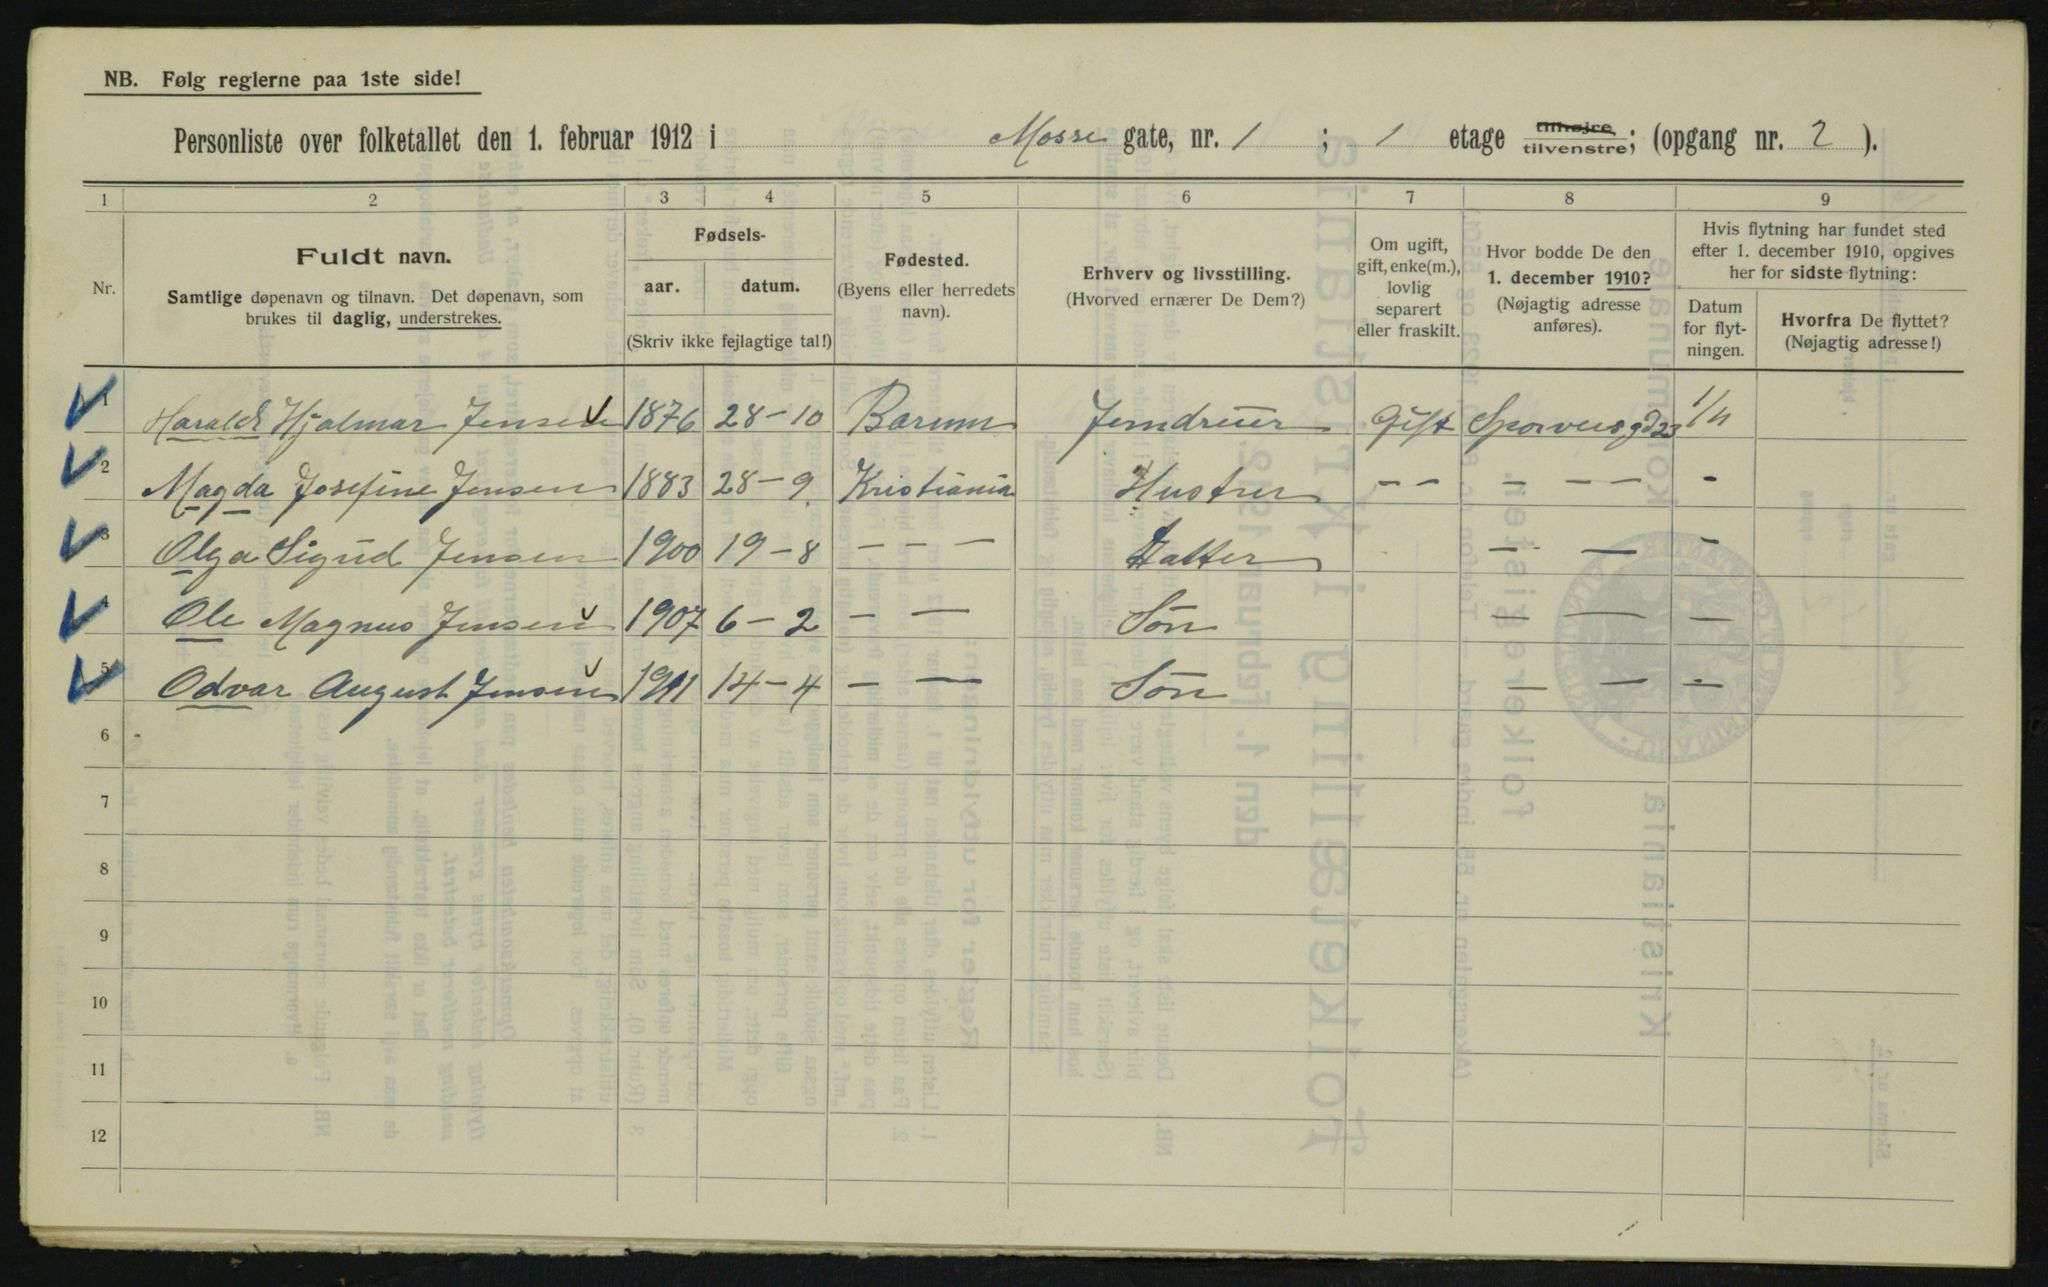 NB. Følg reglerne paa 1ste side!
Personliste over folketallet den 1. februar 1912 i Mosse gate, nr. 1 ; 1 etage tilhøjre tilvenstre; (opgang nr. 2 ).
1 2 3 4 5 6 7 8 9
Nr.
Fuldt navn.
Samtlige døpenavn og tilnavn. Det døpenavn, som
brukes til daglig, understrekes.
Fødsels-
aar. datum.
(Skriv ikke fejlagtige tal!)
Fødested.
(Byens eller herredets
navn).
Erhverv og livsstilling.
(Hvorved ernærer De Dem?)
Om ugift,
gift, enke(m.),
lovlig
separert
eller fraskilt.
Hvor bodde De den
1. december 1910?
(Nøjagtig adresse
anføres).
Hvis flytning har fundet sted
efter 1. december 1910, opgives
her for sidste flytning:
Datum
for flyt-
ningen.
Hvorfra De flyttet?
(Nøjagtig adresse!)
1 Harald Hjalmar Jensen 1876 28-10 Barum Jerndreier Gift 23 1/11
2 Magda Josefine Jensen 1883 28-9 Kristiania Hustru - - - - - -
3 Olga Sigrid Jensen 1900 19-8 - - - Datter - - -
4 Ole Magnus Jensen 1907 6-2 - - Søn - - -
5 Odvar August Jensen 1911 14-4 - - Søn - - -
6
7
8
9
10
11
12